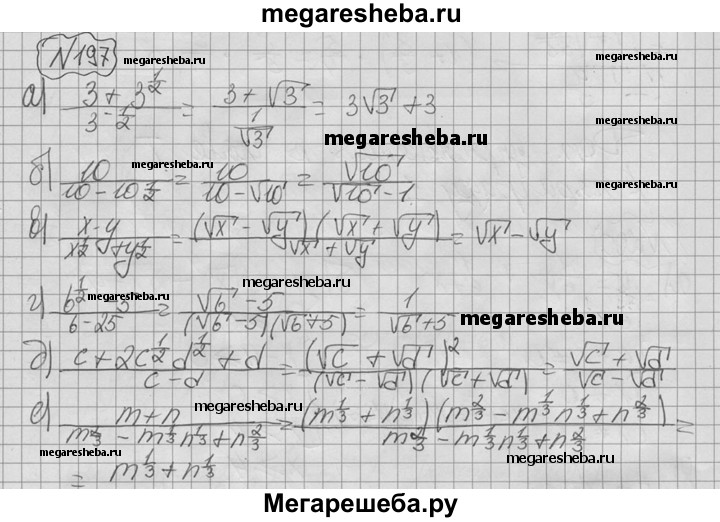 megaresheba.ru
№197
megaresheba.ru
megaresheba.ru
а) (3 + 3^(1/2)) / 3^(-1/2) = (3 + √3) / (1/√3) = 3√3 + 3
megaresheba.ru
megaresheba.ru
megaresheba.ru
б) 10 / (10 - 10^(1/2)) = 10 / (10 - √10) = √10 / (√10 - 1)
megaresheba.ru
в) (x - y) / (x^(1/2) + y^(1/2)) = (√x - √y)(√x + √y) / (√x + √y) = √x - √y
megaresheba.ru
megaresheba.ru
г) (6^(1/2) - 5) / (6 - 25) = (√6 - 5) / ((√6 - 5)(√6 + 5)) = 1 / (√6 + 5)
megaresheba.ru
д) (c + 2c^(1/2) d^(1/2) + d) / (c - d) = (√c + √d)² / ((√c - √d)(√c + √d)) = (√c + √d) / (√c - √d)
megaresheba.ru
е) (m + n) / (m^(2/3) - m^(1/3) n^(1/3) + n^(2/3)) = (m^(1/3) + n^(1/3))(m^(2/3) - m^(1/3) n^(1/3) + n^(2/3)) / (m^(2/3) - m^(1/3) n^(1/3) + n^(2/3)) =
megaresheba.ru
megaresheba.ru
= m^(1/3) + n^(1/3)
Мегарешеба.ру